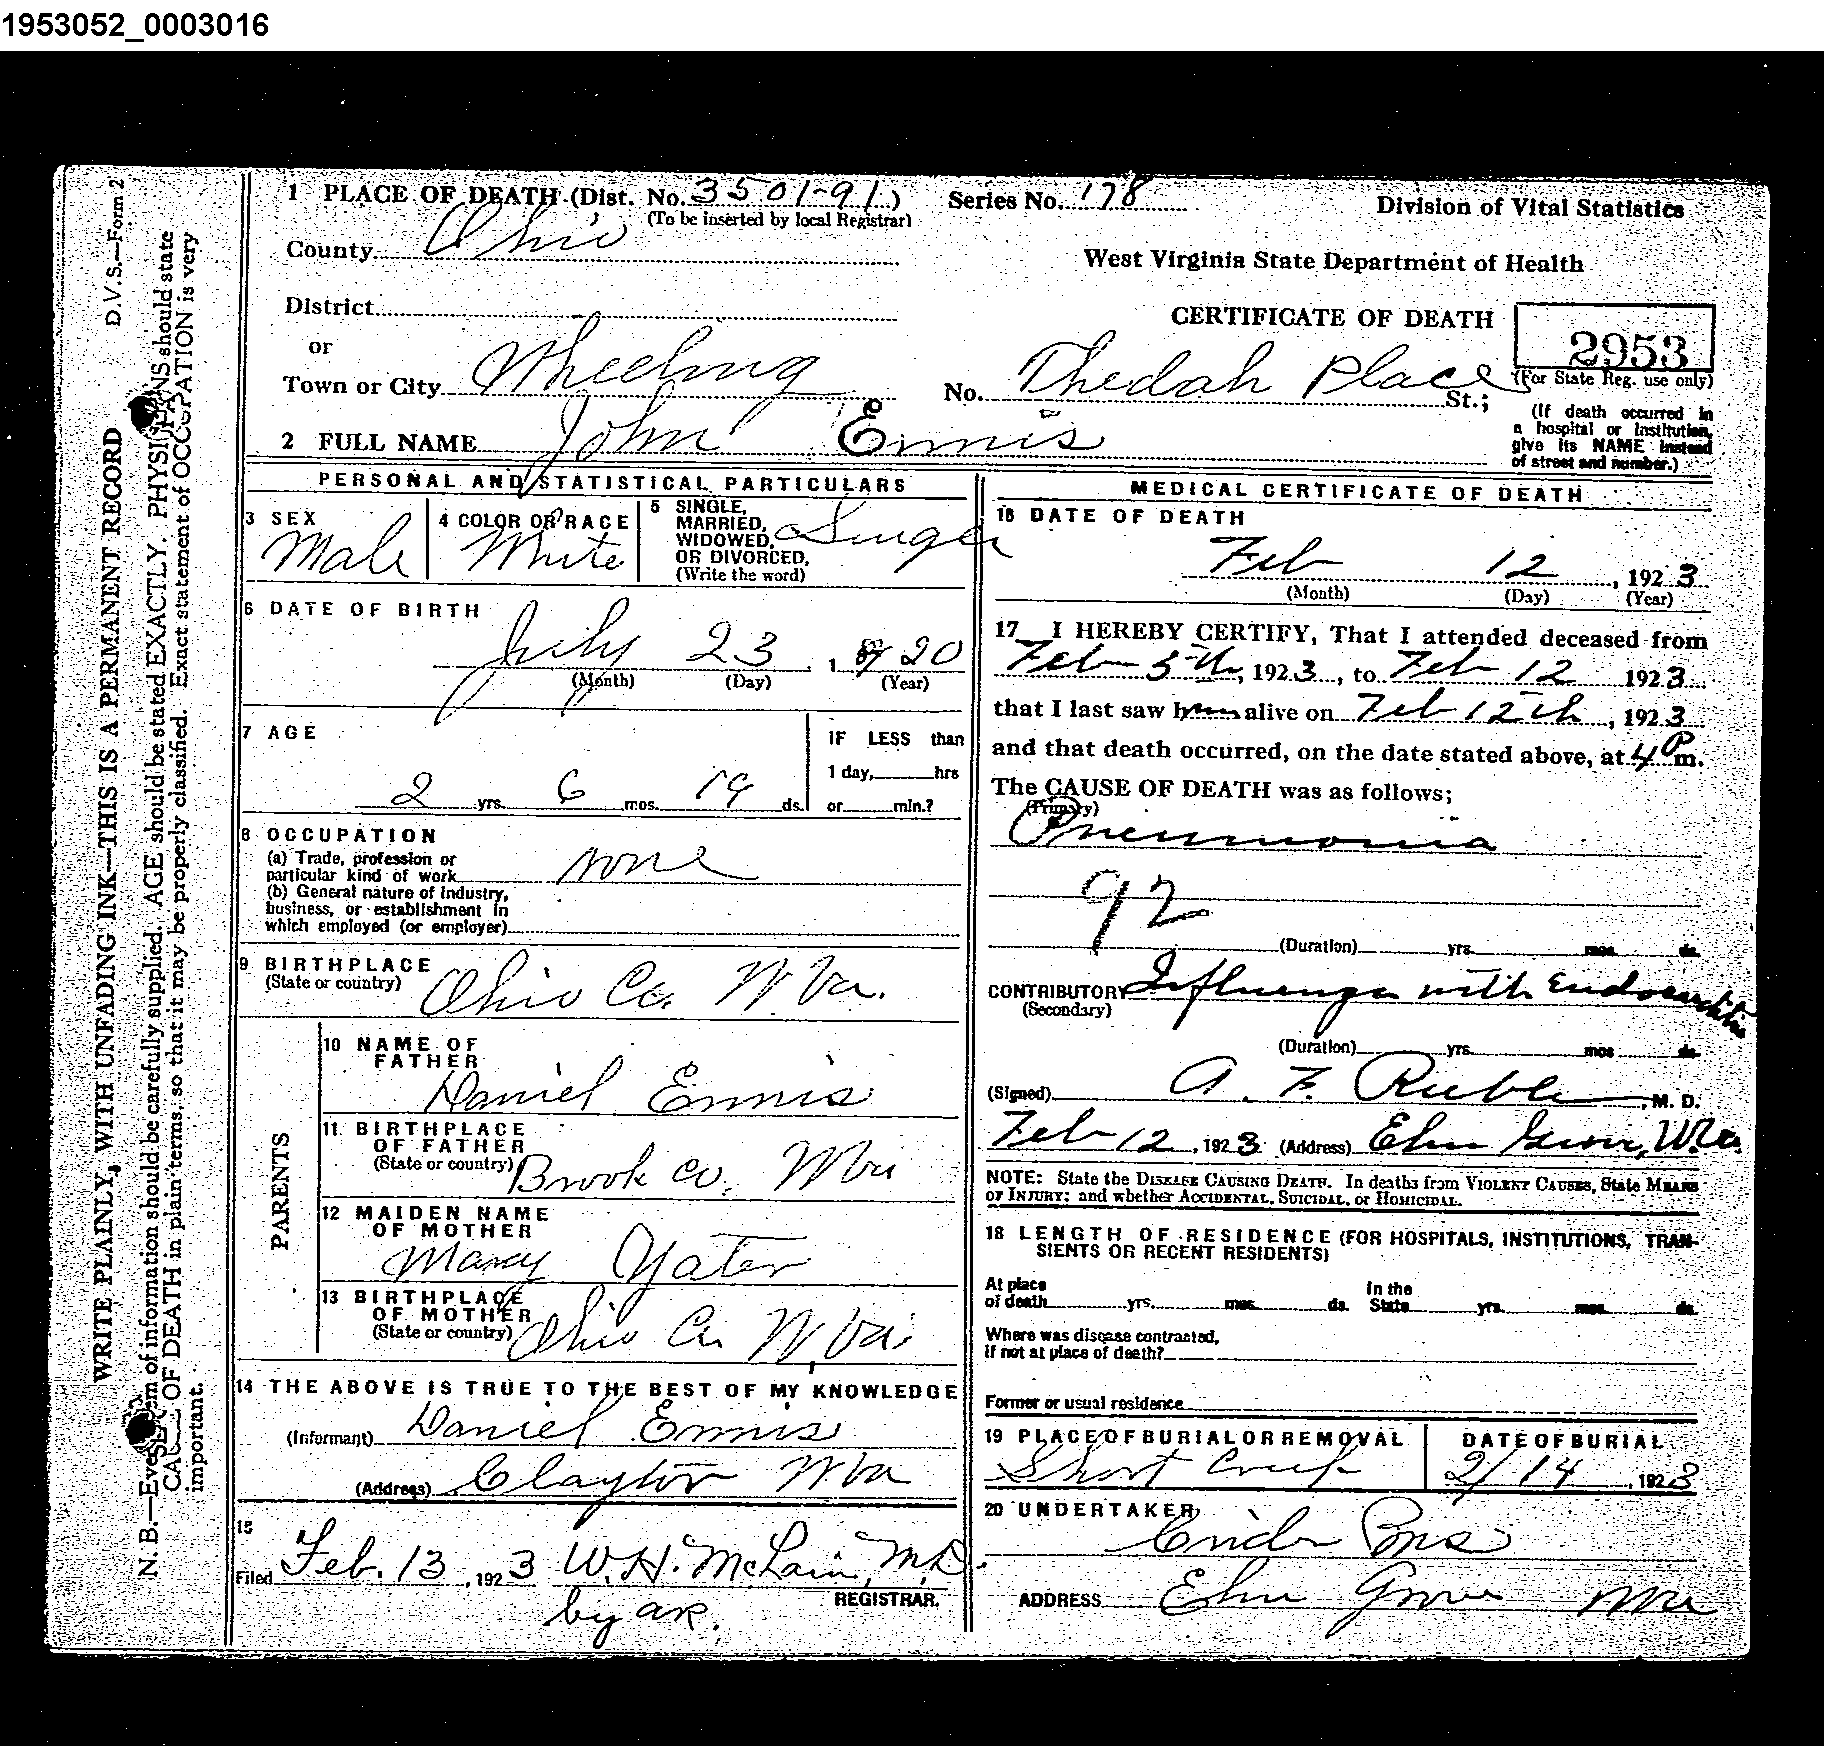 1953052_0003016
D.V.S.—Form 2
WRITE PLAINLY, WITH UNFADING INK—THIS IS A PERMANENT RECORD
N. B.—Every item of information should be carefully supplied. AGE should be stated EXACTLY. PHYSICIANS should state
CAUSE OF DEATH in plain terms, so that it may be properly classified. Exact statement of OCCUPATION is very
important.
1 PLACE OF DEATH (Dist. No. 3501-91) Series No. 178 Division of Vital Statistics
(To be inserted by local Registrar)
County Ohio
West Virginia State Department of Health
District
CERTIFICATE OF DEATH
2953
(For State Reg. use only)
or
Town or City Wheeling No. Thedah Place St.;
(If death occurred in
a hospital or institution,
give its NAME instead
of street and number.)
2 FULL NAME John Ennis
PERSONAL AND STATISTICAL PARTICULARS
3 SEX
Male
4 COLOR OR RACE
White
5 SINGLE,
MARRIED,
WIDOWED,
OR DIVORCED,
(Write the word)
July 23, 1920
6 DATE OF BIRTH
(Month) (Day) (Year)
7 AGE
2 yrs. 6 mos. 19 ds.
IF LESS than
1 day, hrs
or min.?
8 OCCUPATION
(a) Trade, profession or
particular kind of work none
(b) General nature of Industry,
business, or establishment in
which employed (or employer)
9 BIRTHPLACE
(State or country) Ohio Co. W Va.
PARENTS
10 NAME OF
FATHER
Daniel Ennis
11 BIRTHPLACE
OF FATHER
(State or country) Brook Co. W Va
12 MAIDEN NAME
OF MOTHER
Mary Yater
13 BIRTHPLACE
OF MOTHER
(State or country) Ohio Co. W. Va
14 THE ABOVE IS TRUE TO THE BEST OF MY KNOWLEDGE
(Informant) Daniel Ennis
(Address) Clayton W Va
15
Filed Feb. 13, 1923 W. H. McLain, M.D.
REGISTRAR.
by ar.
MEDICAL CERTIFICATE OF DEATH
16 DATE OF DEATH
Feb 12, 1923
(Month) (Day) (Year)
17 I HEREBY CERTIFY, That I attended deceased from
Feb 5th, 1923, to Feb 12 1923
that I last saw him alive on Feb 12th, 1923
and that death occurred, on the date stated above, at 4 P m.
The CAUSE OF DEATH was as follows;
(Primary)
Pneumonia
92
(Duration) yrs. mos. ds.
CONTRIBUTORY Influenza with Endocarditis
(Secondary)
(Duration) yrs. mos. ds.
(Signed) A. F. Ruble, M. D.
Feb 12, 1923 (Address) Elm Grove, W.Va.
NOTE: State the DISEASE CAUSING DEATH. In deaths from VIOLENT CAUSES, State MEANS
OF INJURY; and whether ACCIDENTAL, SUICIDAL, or HOMICIDAL.
18 LENGTH OF RESIDENCE (FOR HOSPITALS, INSTITUTIONS, TRAN-
SIENTS OR RECENT RESIDENTS)
At place
of death yrs. mos. ds.
In the
State yrs. mos. ds.
Where was disease contracted,
if not at place of death?
Former or usual residence
19 PLACE OF BURIAL OR REMOVAL
Short Creek
DATE OF BURIAL
2/14, 1923
20 UNDERTAKER
ADDRESS Elm Grove W Va